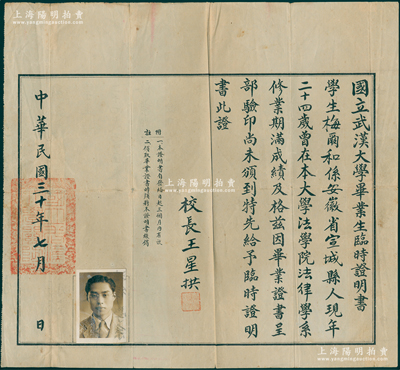 國立武漢大學畢業生臨時證明書
學生梅爾和係安徽省宣城縣人現年
二十四歲曾在本大學法學院法律學系
修業期滿成績及格茲因畢業證書呈
部驗印尚未頒到特先給予臨時證明
書此證
校長王星拱
中華民國三十年七月 日
上海陽明拍賣
www.ymauction.com
上海陽明拍賣